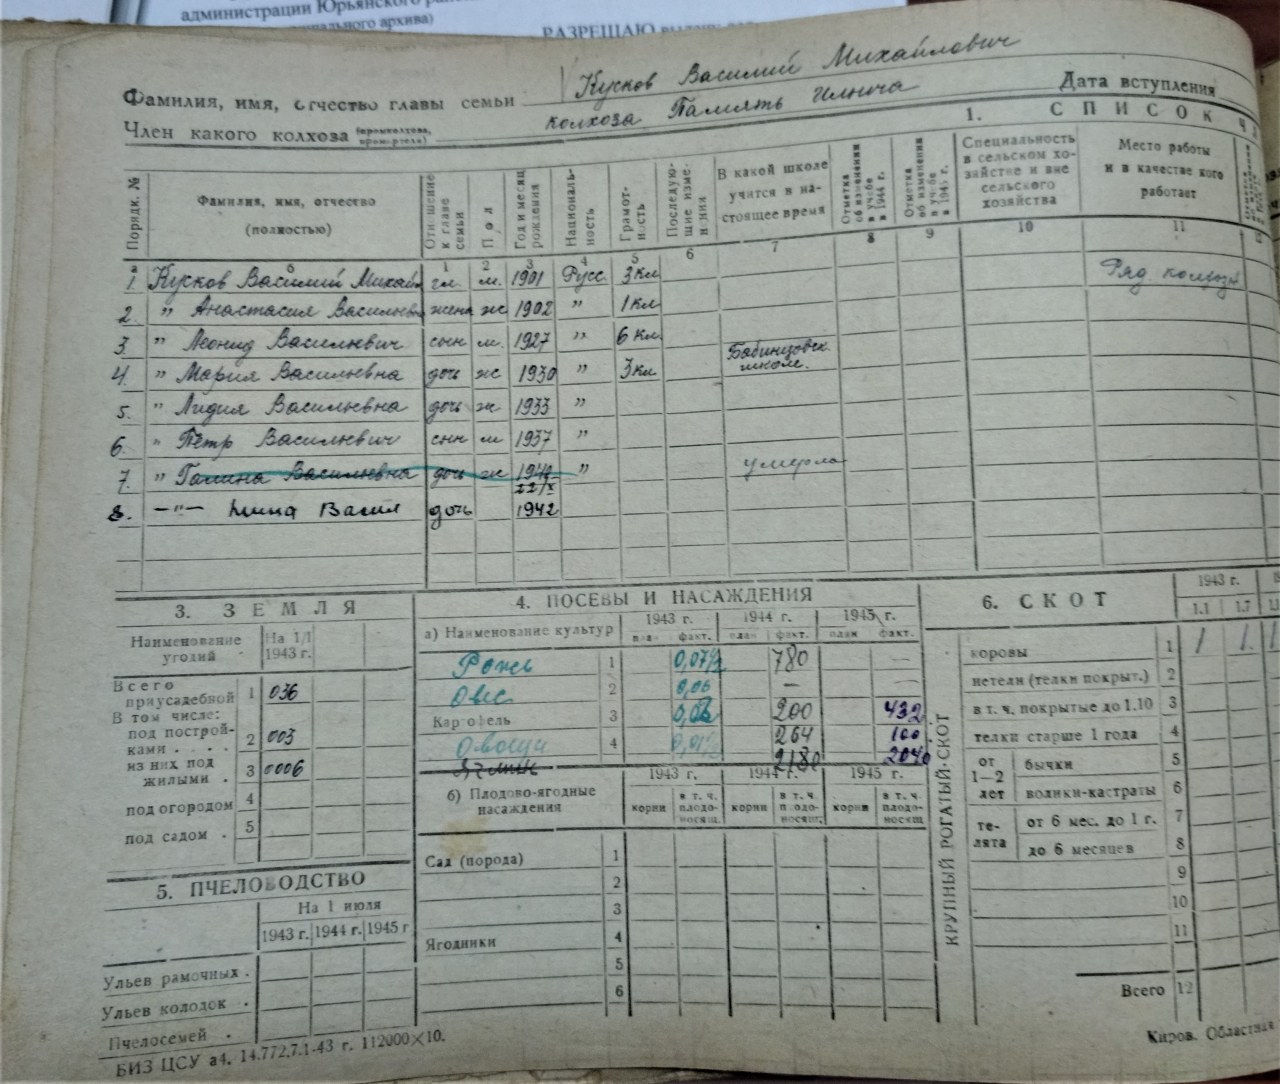 администрации Юрьянского
архива)
РАЗРЕШАЮ
Фамилия, имя, отчество главы семьи Кусков Василий Михайлович
Член какого колхоза (промколхоза, промартели) колхоза Память Ильича
Дата вступления
1. СПИСОК
Порядк. №
Фамилия, имя, отчество (полностью)
Отношение к главе семьи
Пол
Год и месяц рождения
Националь-ность
Грамот-ность
Последую-щие изме-нения
В какой школе учится в на-стоящее время
Отметка об изменении в учебе в 1944 г.
Отметка об изменении в учебе в 1945 г.
Специальность в сельском хо-зяйстве и вне сельского хозяйства
Место работы и в качестве кого работает
а б 1 2 3 4 5 6 7 8 9 10 11
1. Кусков Василий Михайл гл. м. 1901 Русс 3 кл Ряд. колхозн
2. " Анастасия Васильевн жена ж 1902 " 1 кл
3. " Леонид Васильевич сын м. 1927 " 6 кл
4. " Мария Васильевна дочь ж 1930 " 3 кл Бабинцовск школе.
5. " Лидия Васильевна дочь ж 1933 "
6. " Пётр Васильевич сын м 1937 "
7. " Галина Васильевна дочь ж " умерла
22/X
8. —"— Нина Васил дочь 1942
3. ЗЕМЛЯ
Наименование угодий На 1/I 1943 г.
Всего приусадебной 1 036
В том числе:
под построй-ками . . . . 2 003
из них под жилыми . 3 0006
под огородом 4
под садом . 5
5. ПЧЕЛОВОДСТВО
На 1 июля
1943 г. 1944 г. 1945 г
Ульев рамочных .
Ульев колодок .
Пчелосемей .
БИЗ ЦСУ а4. 14.772.7.1-43 г. 112000×10.
4. ПОСЕВЫ И НАСАЖДЕНИЯ
а) Наименование культур 1943 г. 1944 г. 1945 г.
план факт. план факт. план факт.
Рожь 1 780 —
Овес 2 0,06 —
Картофель 3 200 432
Овощи 4 264 100
2180 2040
б) Плодово-ягодные насаждения 1943 г. 1944 г. 1945 г.
корни в т. ч. плодо-носящ. корни в т. ч. плодо-носящ. корни в т. ч. плодо-носящ
Сад (порода) 1
2
3
Ягодники 4
5
6
6. СКОТ
1943 г.
1.1 1.7
КРУПНЫЙ РОГАТЫЙ СКОТ
коровы 1 1 1.
нетели (телки покрыт.) 2
в т. ч. покрытые до 1.10 3
телки старше 1 года 4
от 1—2 лет бычки 5
волики-кастраты 6
те-лята от 6 мес. до 1 г. 7
до 6 месяцев 8
9
10
11
Всего 12
Киров. Областная